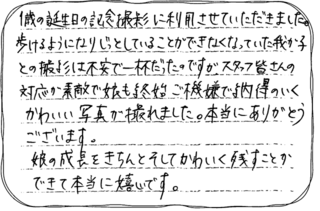 1歳の誕生日の記念撮影に利用させていただきました。
歩けるようになりじっとしていることができなくなっていた我が子
との撮影は不安で一杯だったのですがスタッフ皆さんの
対応が素敵で娘も終始ご機嫌で納得のいく
かわいい写真が撮れました。本当にありがとう
ございます。
娘の成長をきちんとそしてかわいく残すことが
できて本当に嬉しいです。